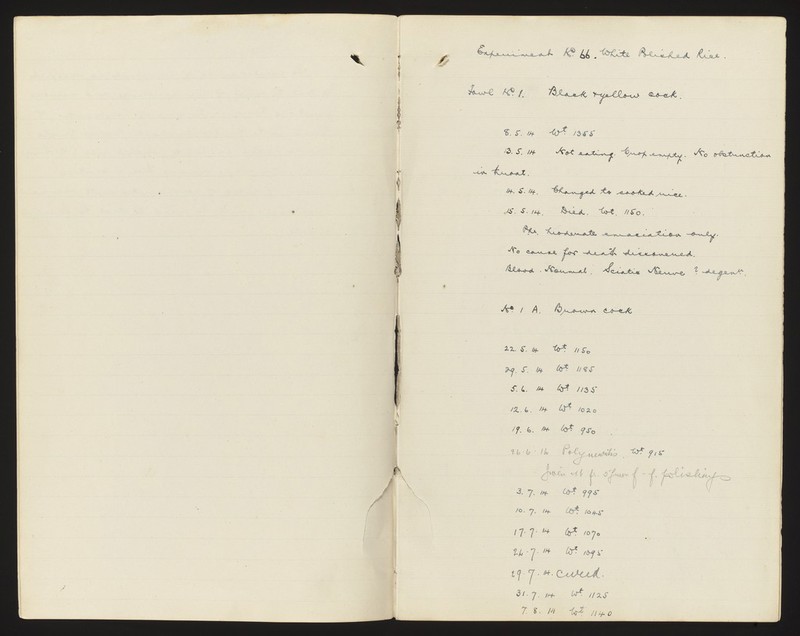 Experiment No 66. White Polished Rice.
Fowl No 1. Black & yellow cock.
8. 5. 14 Wt 1355
13. 5. 14 Not eating. Crop empty. No obstruction
in throat.
14. 5. 14. Changed to soaked rice.
15. 5. 14. Died. Wt. 1150.
P.M. Moderate emaciation only.
No cause for death discovered.
Blood - Normal. Sciatic Nerve ? degen.
No 1 A. Brown cock
22. 5. 14 Wt 1150
29. 5. 14 Wt 1185
5. 6. 14 Wt 1135
12. 6. 14 Wt 1020
19. 6. 14 Wt 950
26. 6. 14 Polyneuritis. Wt 915
polishings
3. 7. 14 Wt 995
10. 7. 14 Wt 1045
17. 7. 14 Wt 1070
24. 7. 14 Wt 1095
29. 7. 14. Cured.
31. 7. 14 Wt 1125
7. 8. 14 Wt 1140